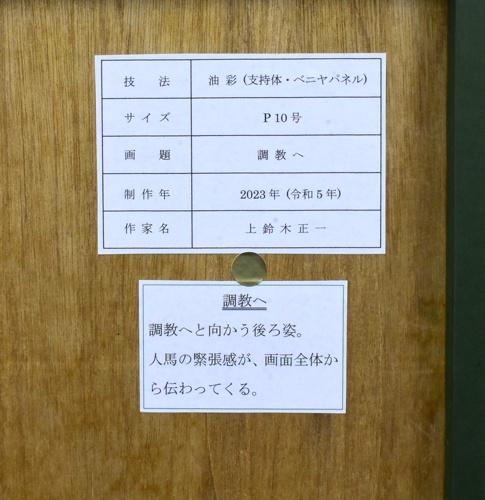 技法 油彩 (支持体・ベニヤパネル)
サイズ P10号
画題 調教へ
制作年 2023年 (令和5年)
作家名 上鈴木正一
調教へ
調教へと向かう後ろ姿。
人馬の緊張感が、画面全体か
ら伝わってくる。